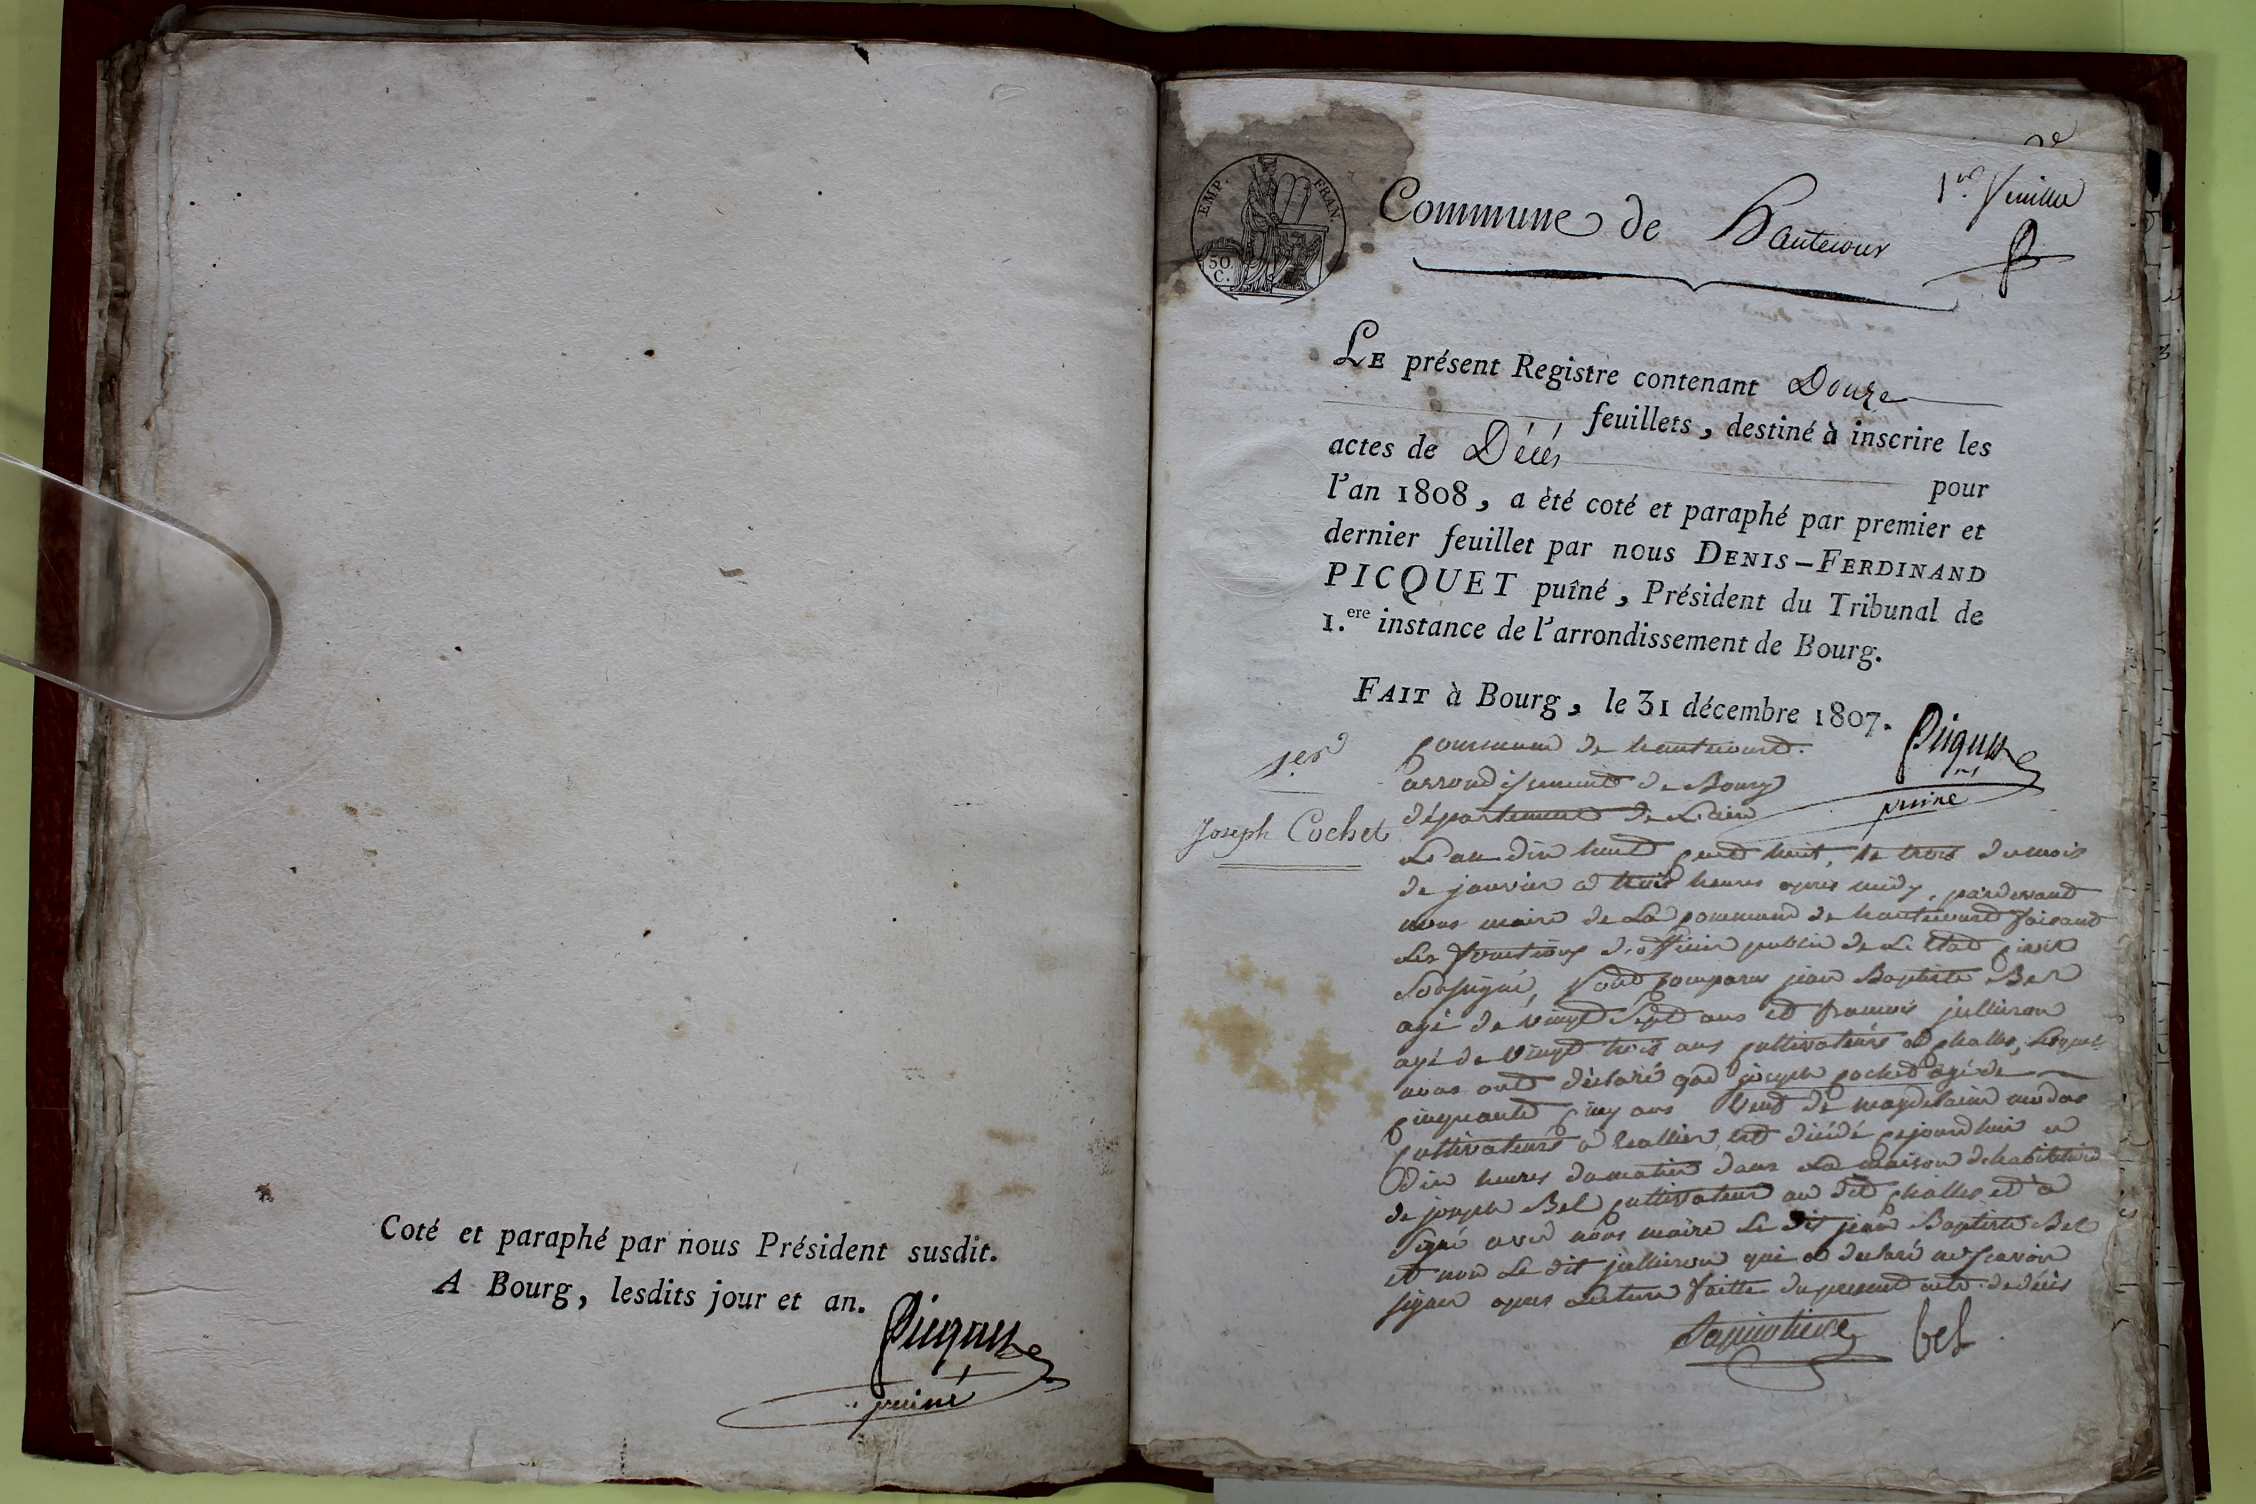 Coté et paraphé par nous Président susdit.
A Bourg, lesdits jour et an.
Picquet
puiné
2e
1er feuillet
EMP. FRAN.
50
C.
Commune de hautecour
LE présent Registre contenant Douze
feuillets, destiné à inscrire les
actes de Décés
pour
l'an 1808, a èté coté et paraphé par premier et
dernier feuillet par nous DENIS-FERDINAND
PICQUET puîné, Président du Tribunal de
1.ere instance de l'arrondissement de Bourg.
FAIT à Bourg, le 31 décembre 1807.
Picquet
puiné
1er
Joseph Cochet
Commune de hautecourt.
arrondissement de Bourg
département de L'ain
L'an dix huit cent huit, le trois du mois
de janvier a trois heures apres midy, pardevant
nous maire de La commune de hautecourt faisant
Les fonctions d'officier public de L'Etat civil
Soussigné, Sont comparus jean Baptiste Bel
agé de vingt Sept ans et francois jullieron
agé de vingt trois ans cultivateurs a challes, Lesquels
nous ont déclaré que joseph cochet agé de
cinquante cinq ans de magdelaine
cultivateurs a est décédé cejourdhui a
dix heures du matin dans La maison d'habitation
de joseph Bel cultivateur au dit challes et a
Signé avec nous maire Le dit jean Baptiste Bel
et non Le dit jullieron qui a declaré ne scavoir
signer apres Lecture faitte du present acte de décés
bel